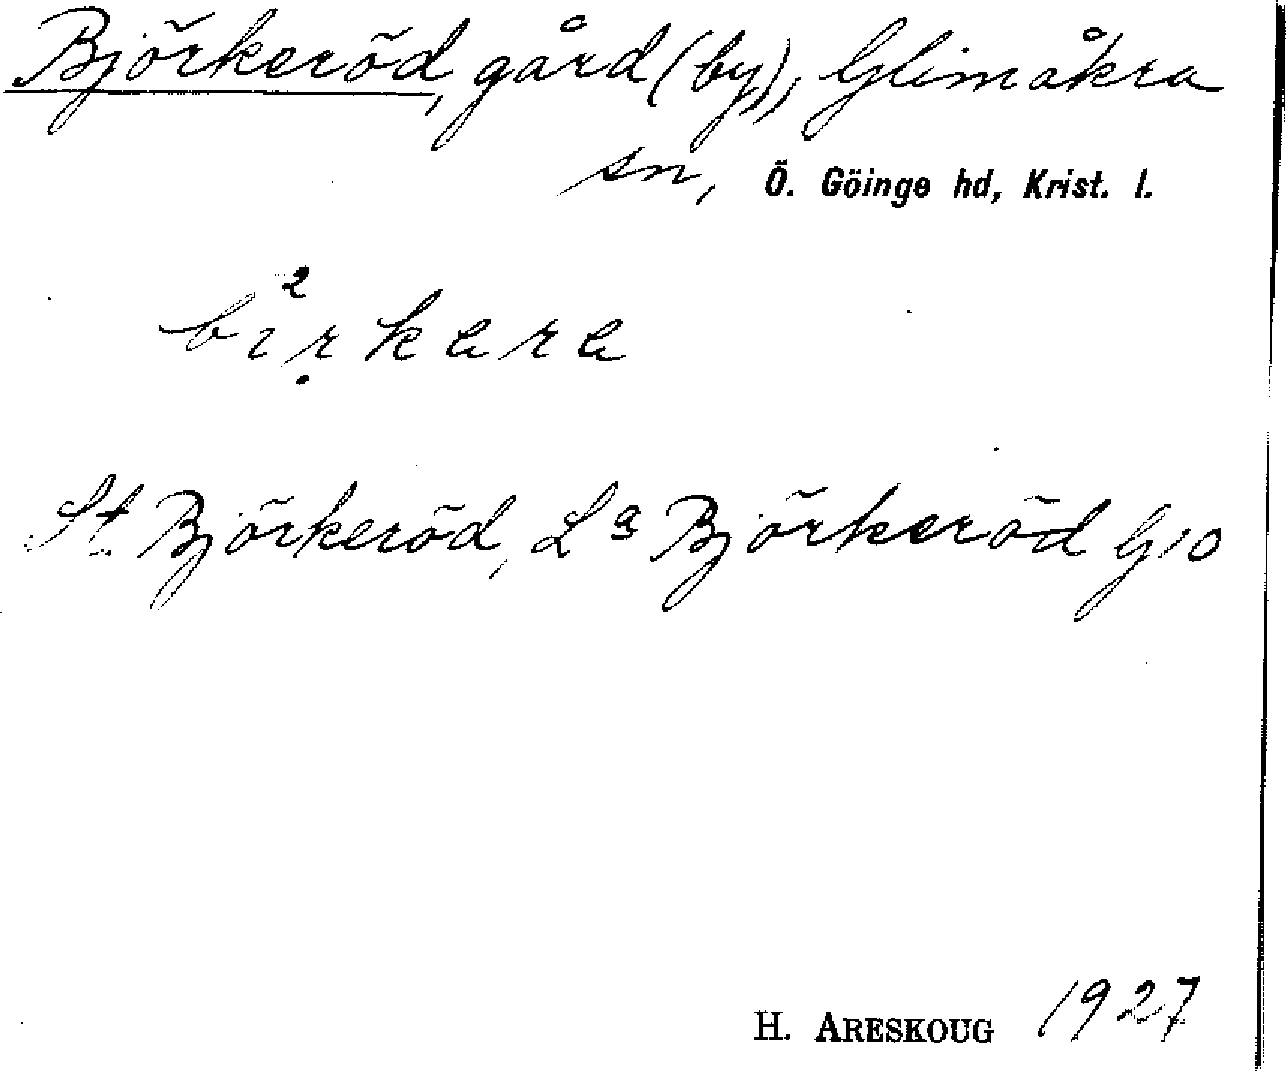 Björkeröd, gård (by), Glimåkra
sn, Ö. Göinge hd, Krist. l.
bi²ṛkara
St. Björkeröd, La Björkeröd G10
H. ARESKOUG 1927